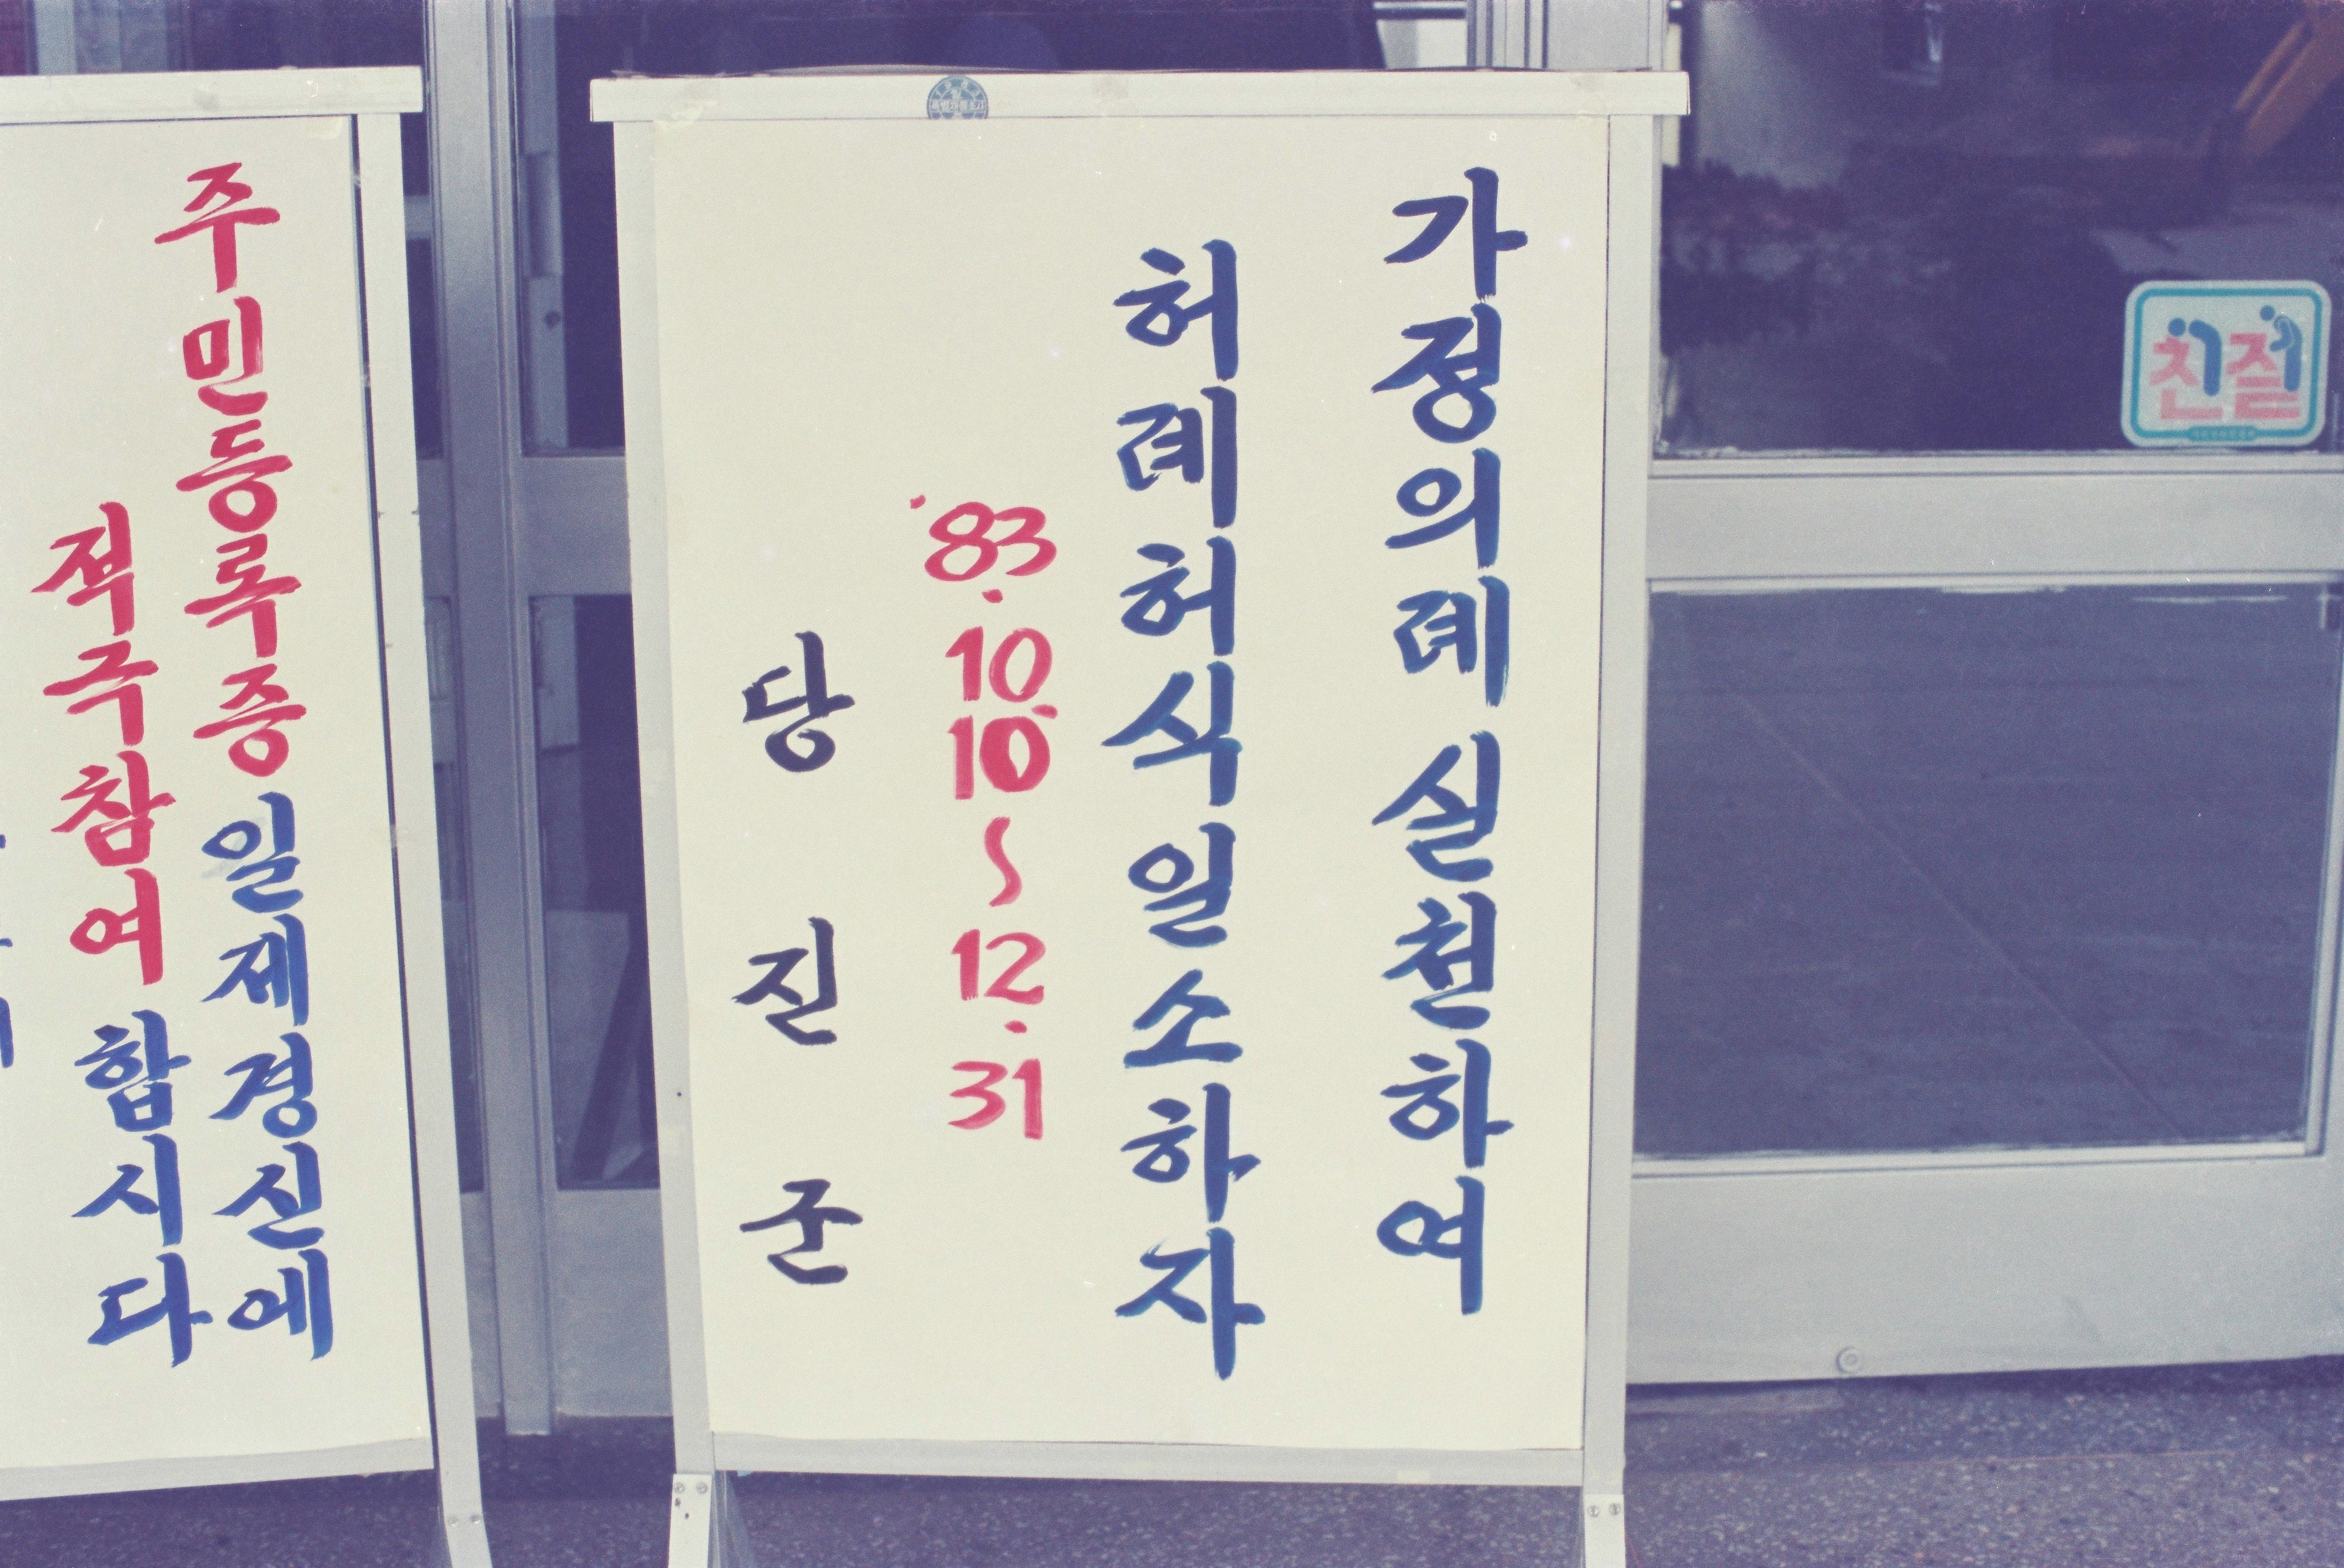 가정의례 실천하여
허례허식 일소하자
'83.10.10~12.31
당진군
주민등록증 일제경신에
적극참여 합시다
친절